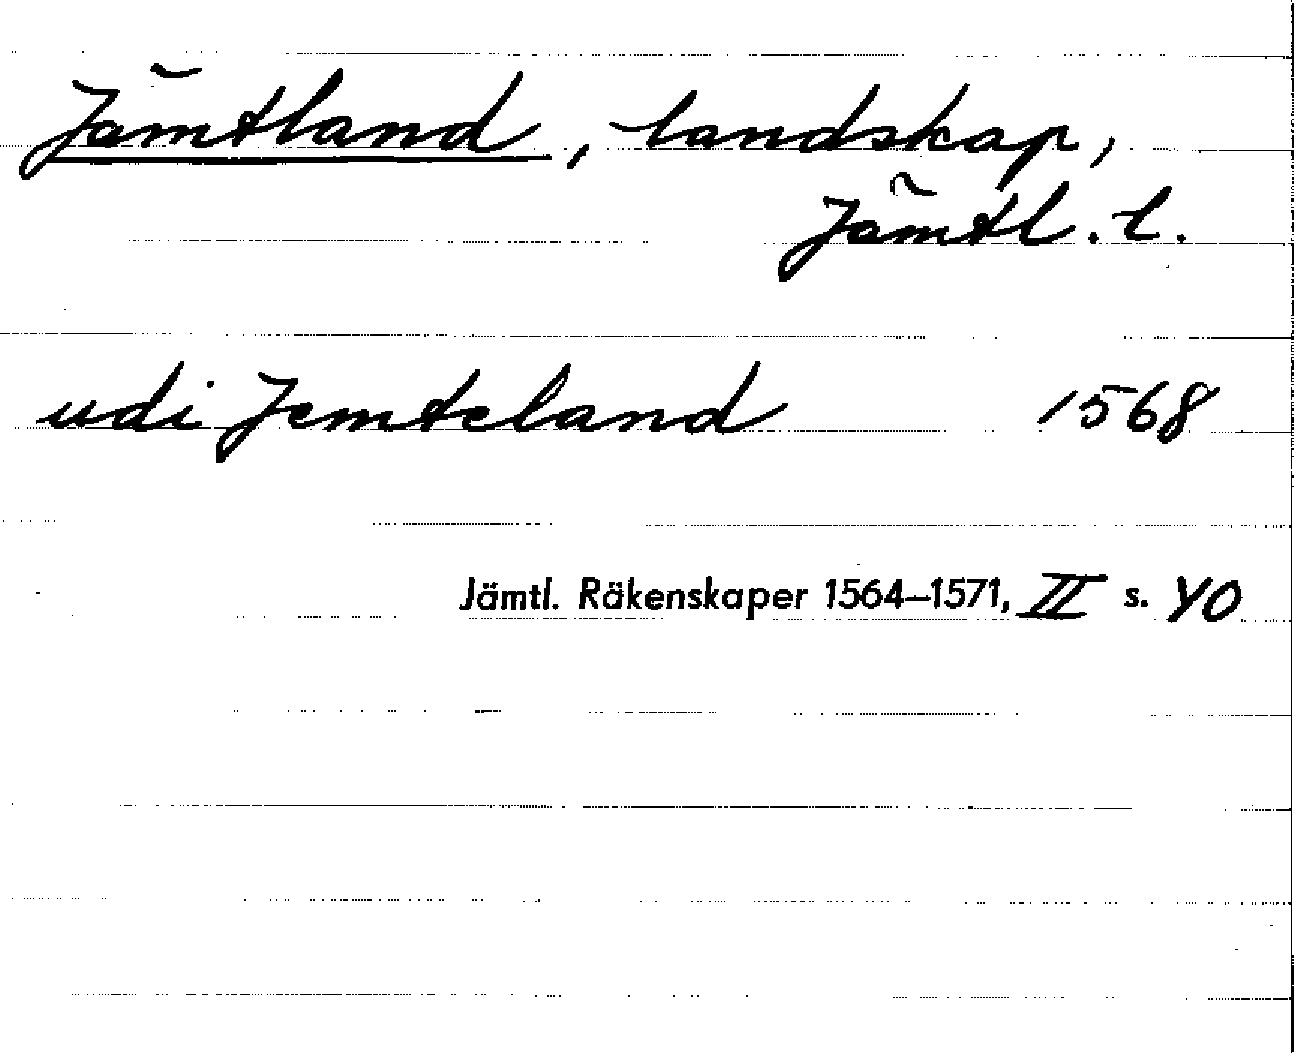 Jämtland, landskap,
Jämtl. l.
udi Jemteland 1568
Jämtl. Räkenskaper 1564–1571, II s. 40